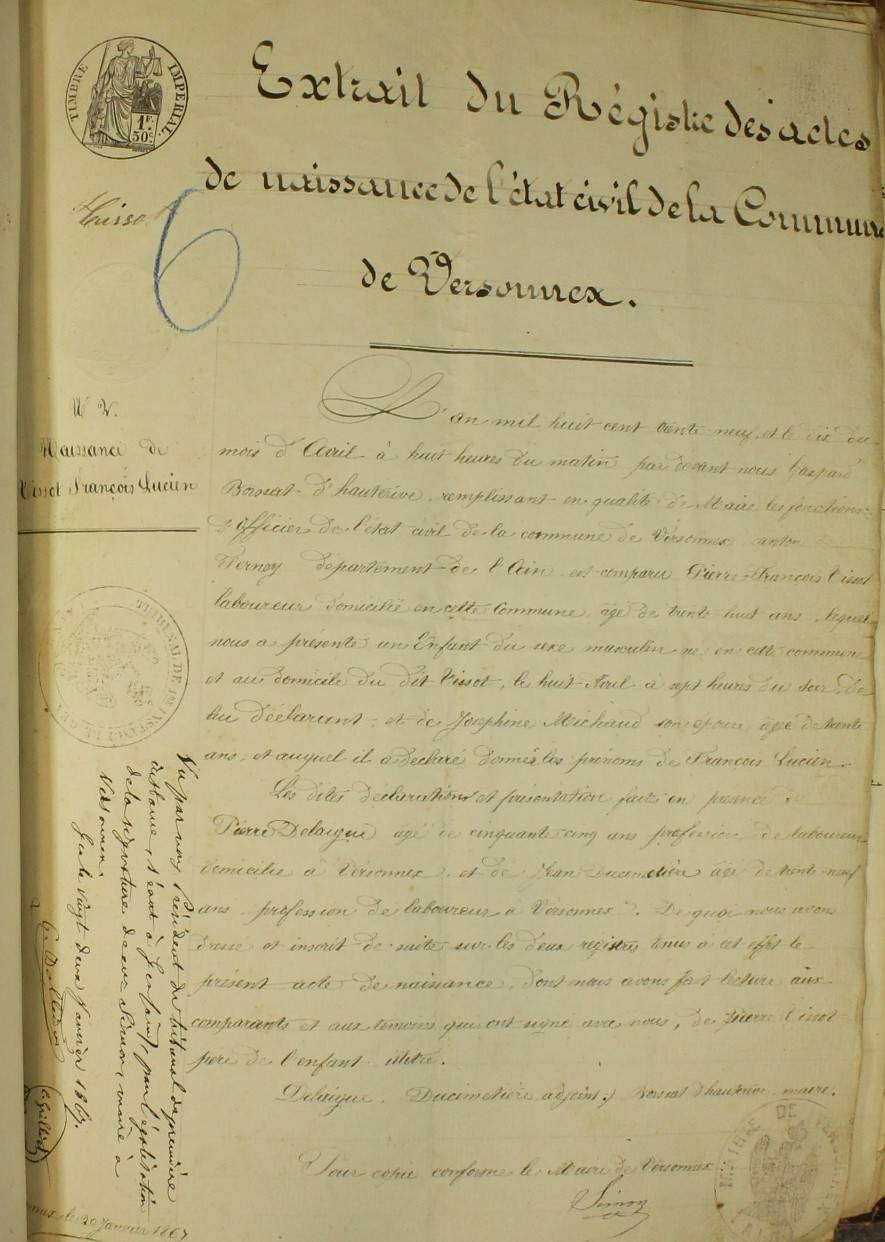 TIMBRE IMPERIAL.
1F. 50c.
Extrait du Régistre des actes
de naissance de l'état civil de la Commune
de Versonnex.
6
N° V.
Naissance de
Vissot François Lucien
L'an mil huit cent trente neuf, et le dix du
mois d'Avril à huit heures du matin par devant nous Gaspard
Borssat d'hauterive, remplissant en qualité de Maire les fonctions
d'officier de l'état civil de la commune de Versonnex
Ferney département de l'Ain est comparu Pierre François Vissot
laboureur domicilié en cette Commune, âgé de trente huit ans, lequel
nous a présenté un Enfant du sexe masculin né en cette commune
et au domicile du dit Vissot, le huit Avril à sept heures du soir, de
lui déclarant, et de Josephine Michaud son epouse âgée de trente
ans, et auquel il a déclaré donner les prénoms de François Lucien.
Les dites déclaration et présentation faite en présence
Pierre Delaigue âgé de cinquante cinq ans profession de laboureur
domicilié à Versonnex, et de Jean Ducimetière âgé de trente neuf
ans profession de laboureur à Versonnex. De quoi nous avons
dressé et inscrit de suite sur les deux registres tenus à cet effet le
présent acte de naissance, dont nous avons fait lecture aux
comparants et aux témoins qui ont signé avec nous, de Pierre Vissot
père de l'enfant illétré.
Delaigue. Ducimetière adjoint, Borssat d'hauterive maire.
Pour copie conforme le Maire de Versonnex
Simon
TRIBUNAL DE 1re INSTANCE
Vu par nous Président du tribunal de première
instance, séant à Gex pour légalisation
de la signature de Simon, maire à
Versonnex.
Gex le vingt deux Janvier 1867.
le 20 Janvier 1867
MAIRIE DE